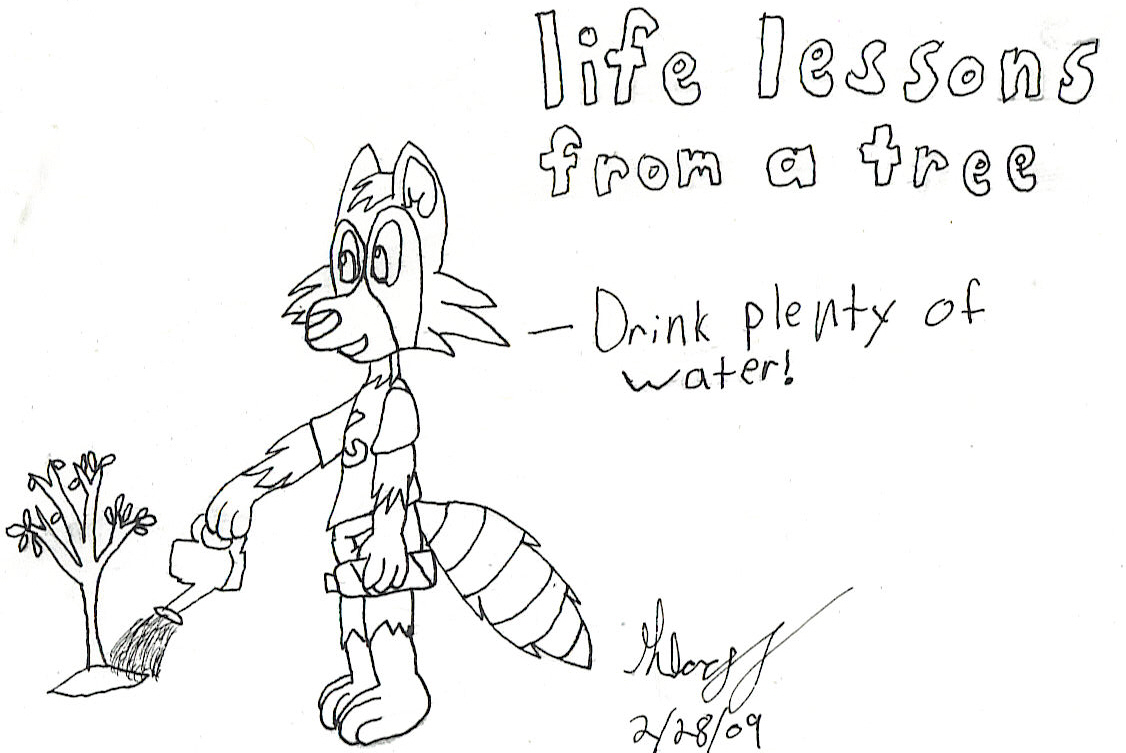 life lessons
from a tree
— Drink plenty of
water!
2/28/09